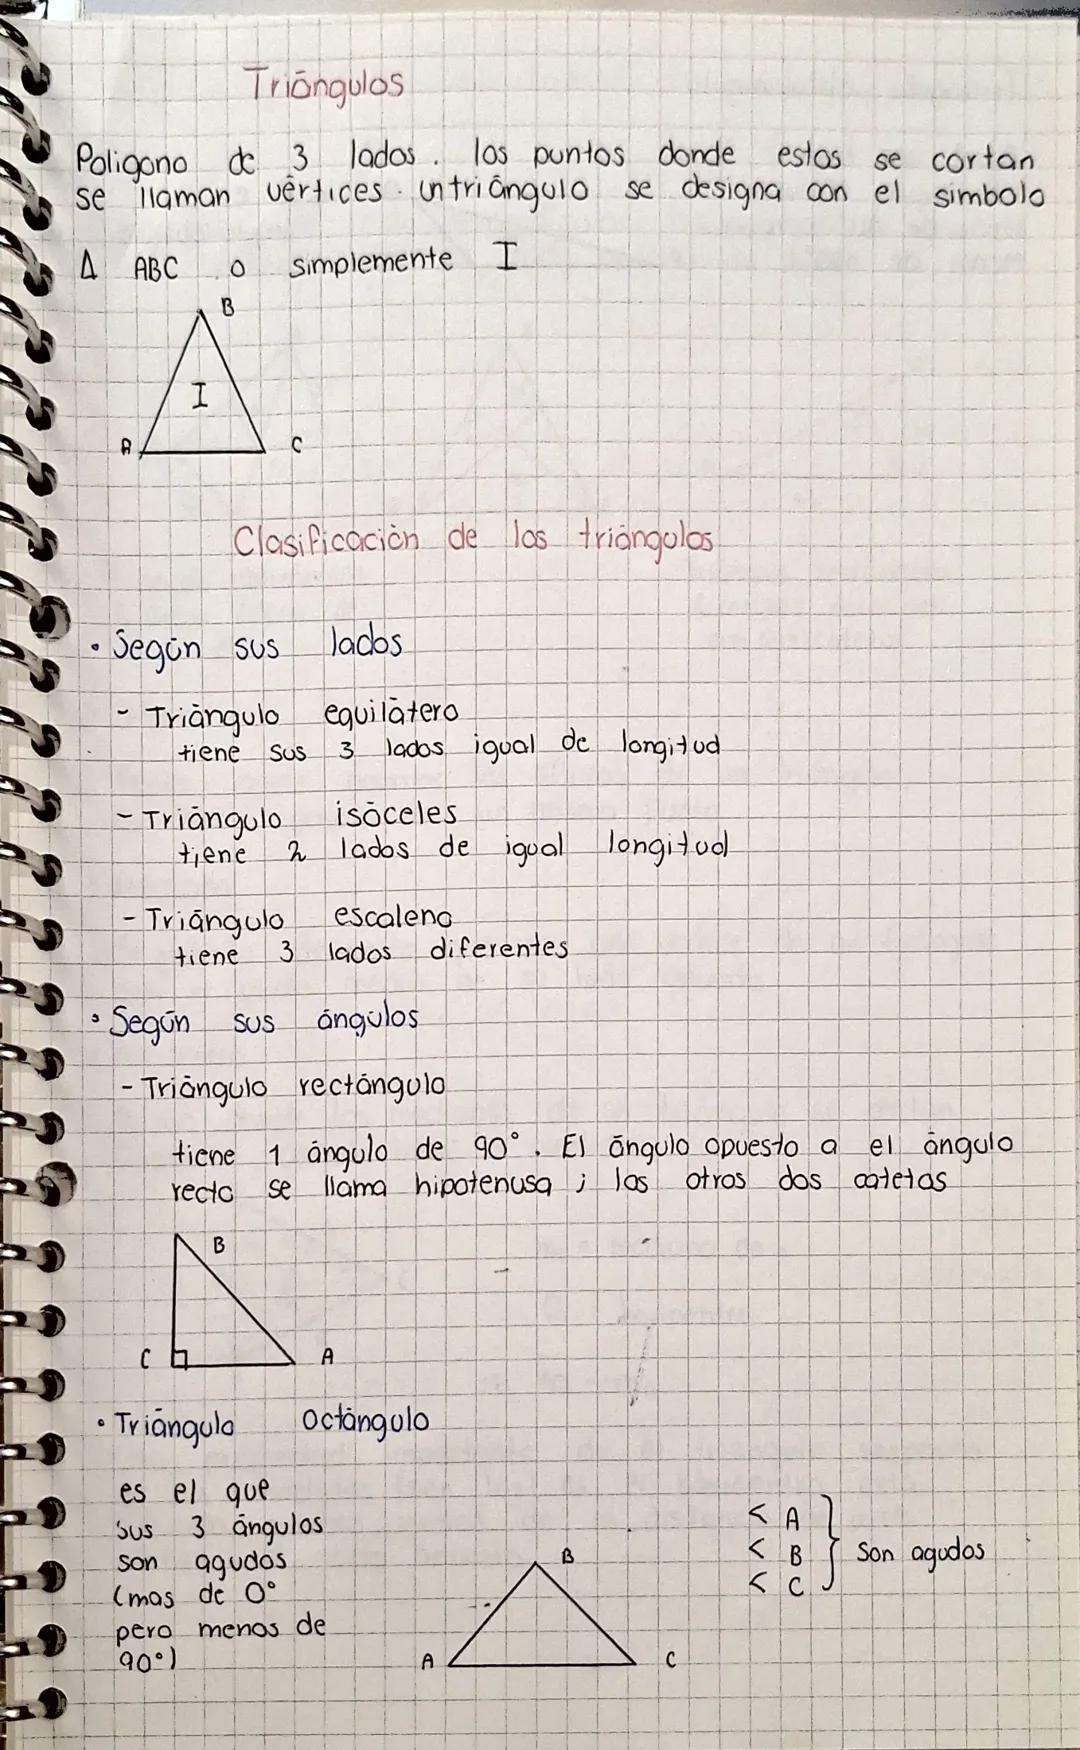 Triángulos
Poligono de 3 lados. los puntos donde estos se cortan
se llaman vértices. un triángulo se designa con el simbolo
Δ ABC o simplemente I
B
I
A C
Clasificación de los triángulos
• Según sus lados
- Triángulo equilátero
tiene sus 3 lados igual de longitud
- Triángulo isóceles
tiene 2 lados de igual longitud
- Triángulo escaleno
tiene 3 lados diferentes
• Según sus ángulos
- Triángulo rectángulo
tiene 1 ángulo de 90°. El ángulo opuesto a el ángulo
recto se llama hipotenusa ; los otros dos catetos
B
C A
• Triángulo Octángulo
es el que
sus 3 ángulos
son agudos
(mas de 0°
pero menos de
90°)
B
A C
< A
< B } Son agudos
< C